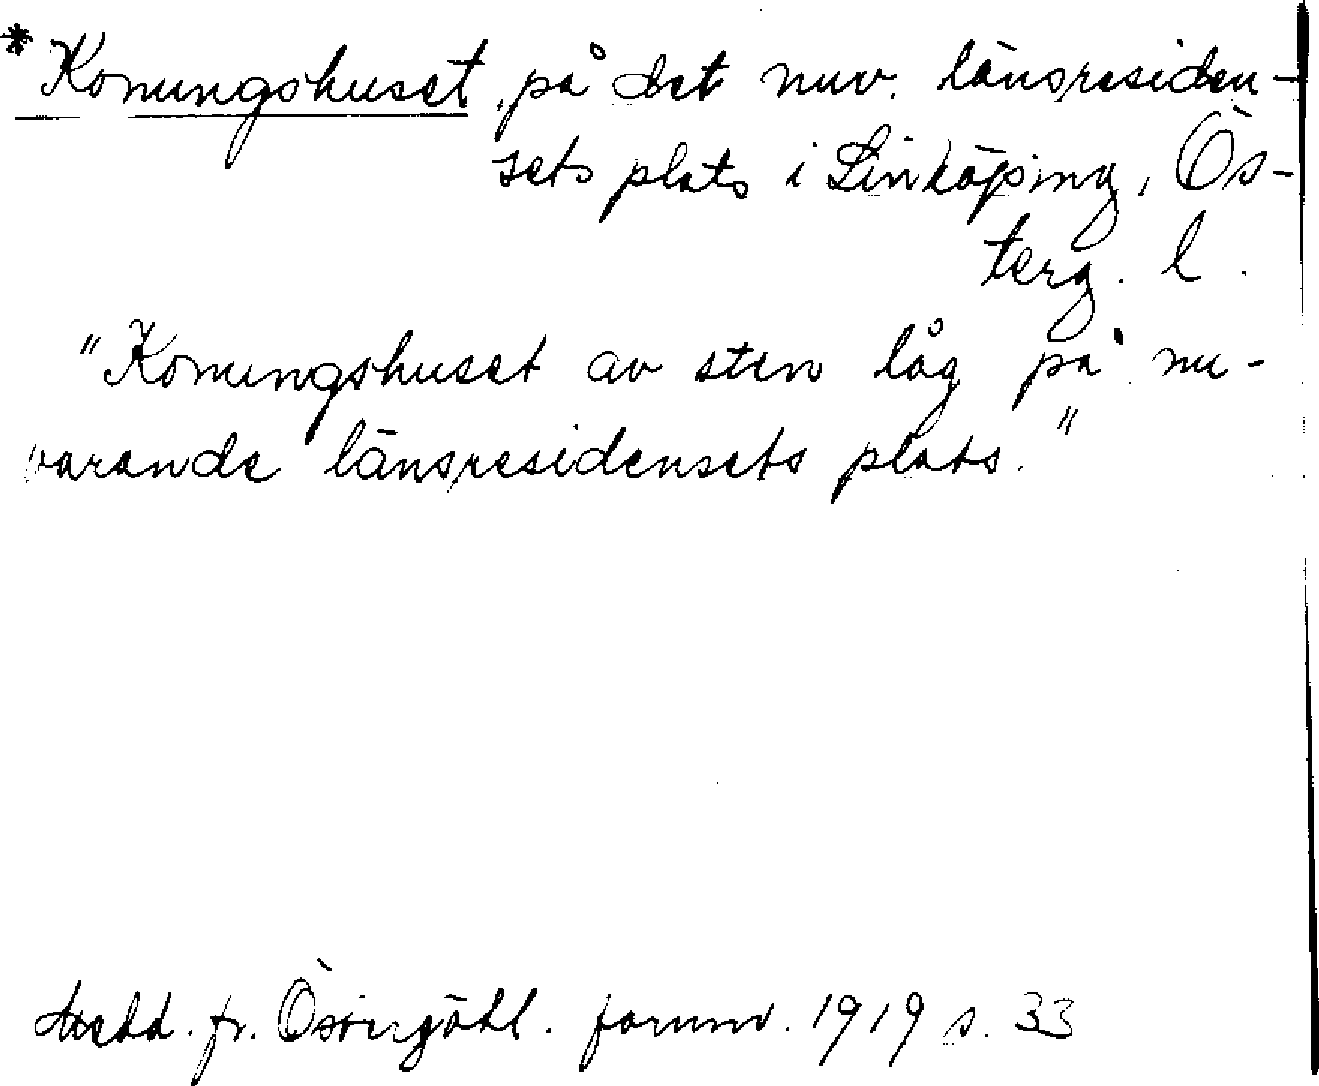 *Konungshuset, på det nuv. länsresiden-
sets plats i Linköping, Ös-
terg. l.
"Konungshuset av sten låg på nu-
varande länsresidensets plats."
Medd. fr. Östergötl. fornm. 1919 s. 33